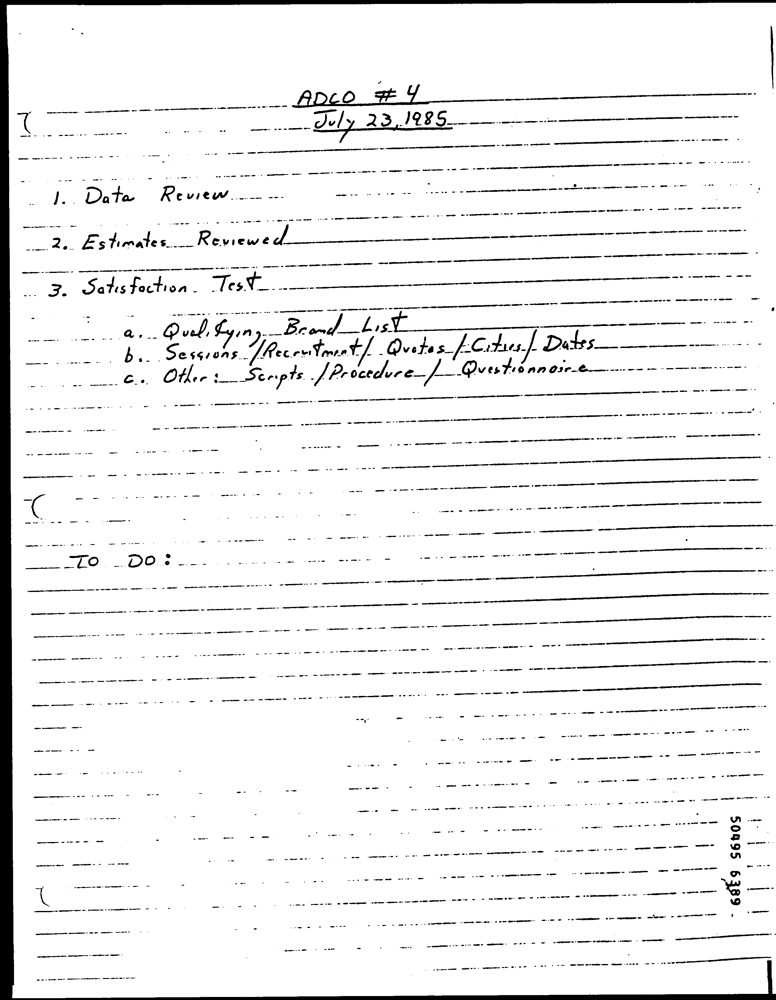 ADCO # 4
July 23, 1985
1. Data Review
2. Estimates Reviewed
3. Satisfaction Test
a. Qualifying Brand List
b. Sessions / Recruitment / Quotas / Cities / Dates
c. Other: Scripts / Procedure / Questionnaire
TO DO:
50495 6389